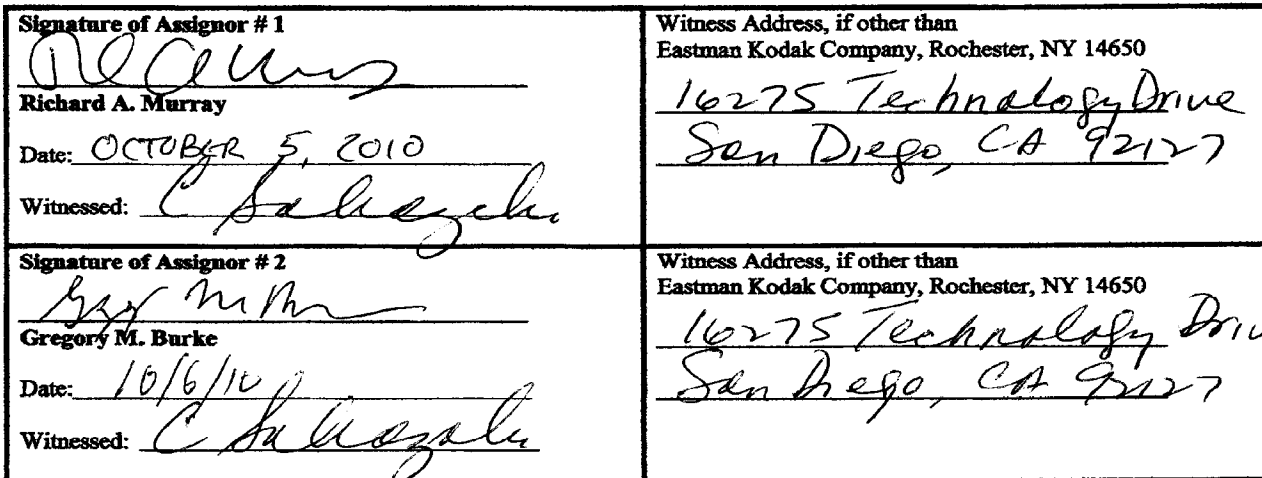 Signature of Assignor # 1
Richard A. Murray
Date: OCTOBER 5, 2010
Witnessed: C
Witness Address, if other than
Eastman Kodak Company, Rochester, NY 14650
16275 Technology Drive
San Diego, CA 92127
Signature of Assignor # 2
Gregory M. Burke
Date: 10/6/10
Witnessed: C
Witness Address, if other than
Eastman Kodak Company, Rochester, NY 14650
16275 Technology Driv
San Diego, CA 92127